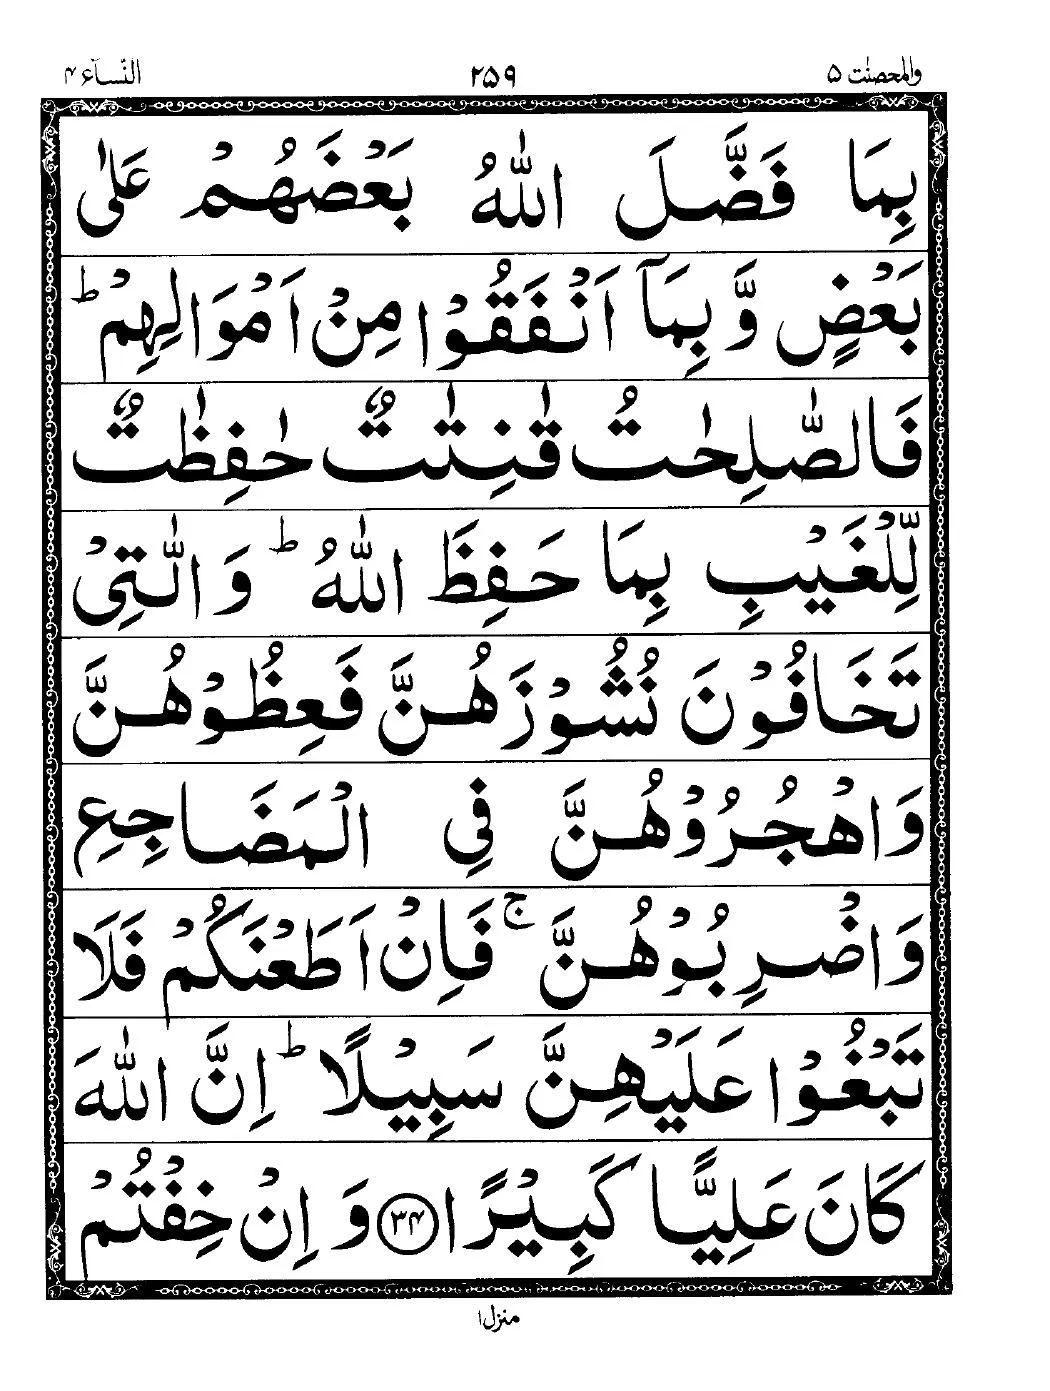 والمحصنٰت ۵ ۲۵۹ النّسآء ۴
بِمَا فَضَّلَ اللّٰهُ بَعْضَهُمْ عَلٰى
بَعْضٍ وَّ بِمَاۤ اَنْفَقُوْا مِنْ اَمْوَالِهِمْ ؕ
فَالصّٰلِحٰتُ قٰنِتٰتٌ حٰفِظٰتٌ
لِّلْغَيْبِ بِمَا حَفِظَ اللّٰهُ ؕ وَ الّٰتِيْ
تَخَافُوْنَ نُشُوْزَهُنَّ فَعِظُوْهُنَّ
وَ اهْجُرُوْهُنَّ فِي الْمَضَاجِعِ
وَ اضْرِبُوْهُنَّ ۚ فَاِنْ اَطَعْنَكُمْ فَلَا
تَبْغُوْا عَلَيْهِنَّ سَبِيْلًا ؕ اِنَّ اللّٰهَ
كَانَ عَلِيًّا كَبِيْرًا ﴿۳۴﴾ وَ اِنْ خِفْتُمْ
منزل ۱